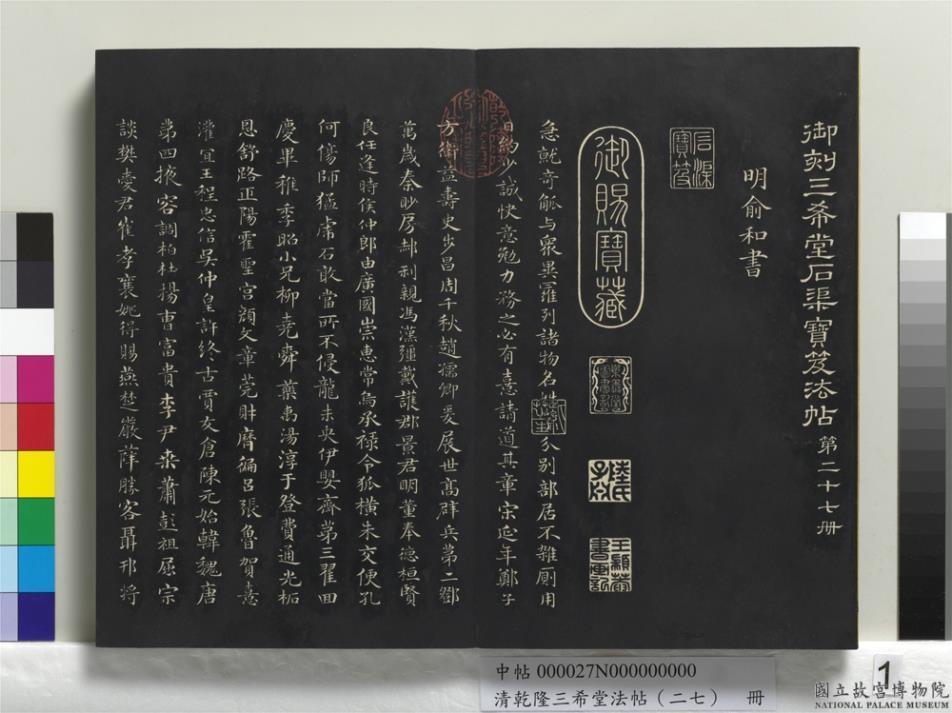 御刻三希堂石渠寶笈法帖 第二十七冊
明俞和書
石渠寶笈
御賜寶藏
急就奇觚与衆異羅列諸物名姓字分別部居不雜廁用
日約少誠快意勉力務之必有憙請道其章宋延年鄭子
方衛益壽史步昌周千秋趙孺卿爰展世高辟兵第二鄧
萬歲秦眇房郝利親馮漢彊戴護郡景君明董奉德桓賢
良任逢時侯仲郎由廣國榮惠常烏承禄令狐橫朱交便孔
何傷師猛虎石敢當所不侵龍未央伊嬰齊第三翟回
慶畢稚季昭小兄柳堯舜藥禹湯淳于登費通光柘
恩舒路正陽霍聖宮顏文章莞財曆偏呂張魯賀憙
灌宜王程忠信吳仲皇許終古賈友倉陳元始韓魏唐
第四掖容調柏杜揚曹富貴李尹桒蕭彭祖屈宗
談樊愛君崔孝襄姚得賜燕楚嚴薛勝客聶邗將
中帖 000027N000000000
清乾隆三希堂法帖（二七） 冊
1
國立故宮博物院
NATIONAL PALACE MUSEUM